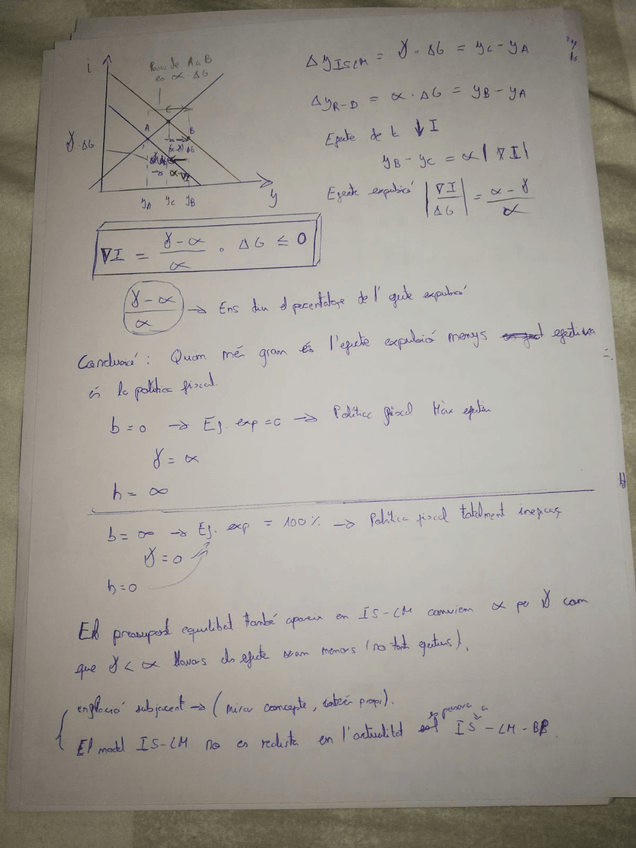 i
A B
α ΔG
γ ΔG
A
B
α ∇I
yA yC yB
y
Δy IS-LM = γ · ΔG = yC - yA
Δy R-D = α · ΔG = yB - yA
Efecte de ↓ I
yB - yC = α | ∇I |
Efecte expulsió | ∇I / ΔG | = α - γ / α
∇I = γ - α / α · ΔG ≤ 0
γ - α / α → Ens diu el percentatge de l'efecte expulsió
Conclusió: Quan més gran és l'efecte expulsió menys efectiva
és la política fiscal.
b = 0 → Ef. exp = 0 → Política fiscal Màx
γ = α
h = ∞
b = ∞ → Ef. exp = 100% → Política fiscal totalment ineficaç
γ = 0
h = 0
El pressupost equilibrat també apareix en IS-LM α per γ com
que γ < α llavors els efectes seran menors (no tant).
subjacent → (mirar concepte,).
El model IS-LM no es realista en l'actualitat IS - LM - BB.